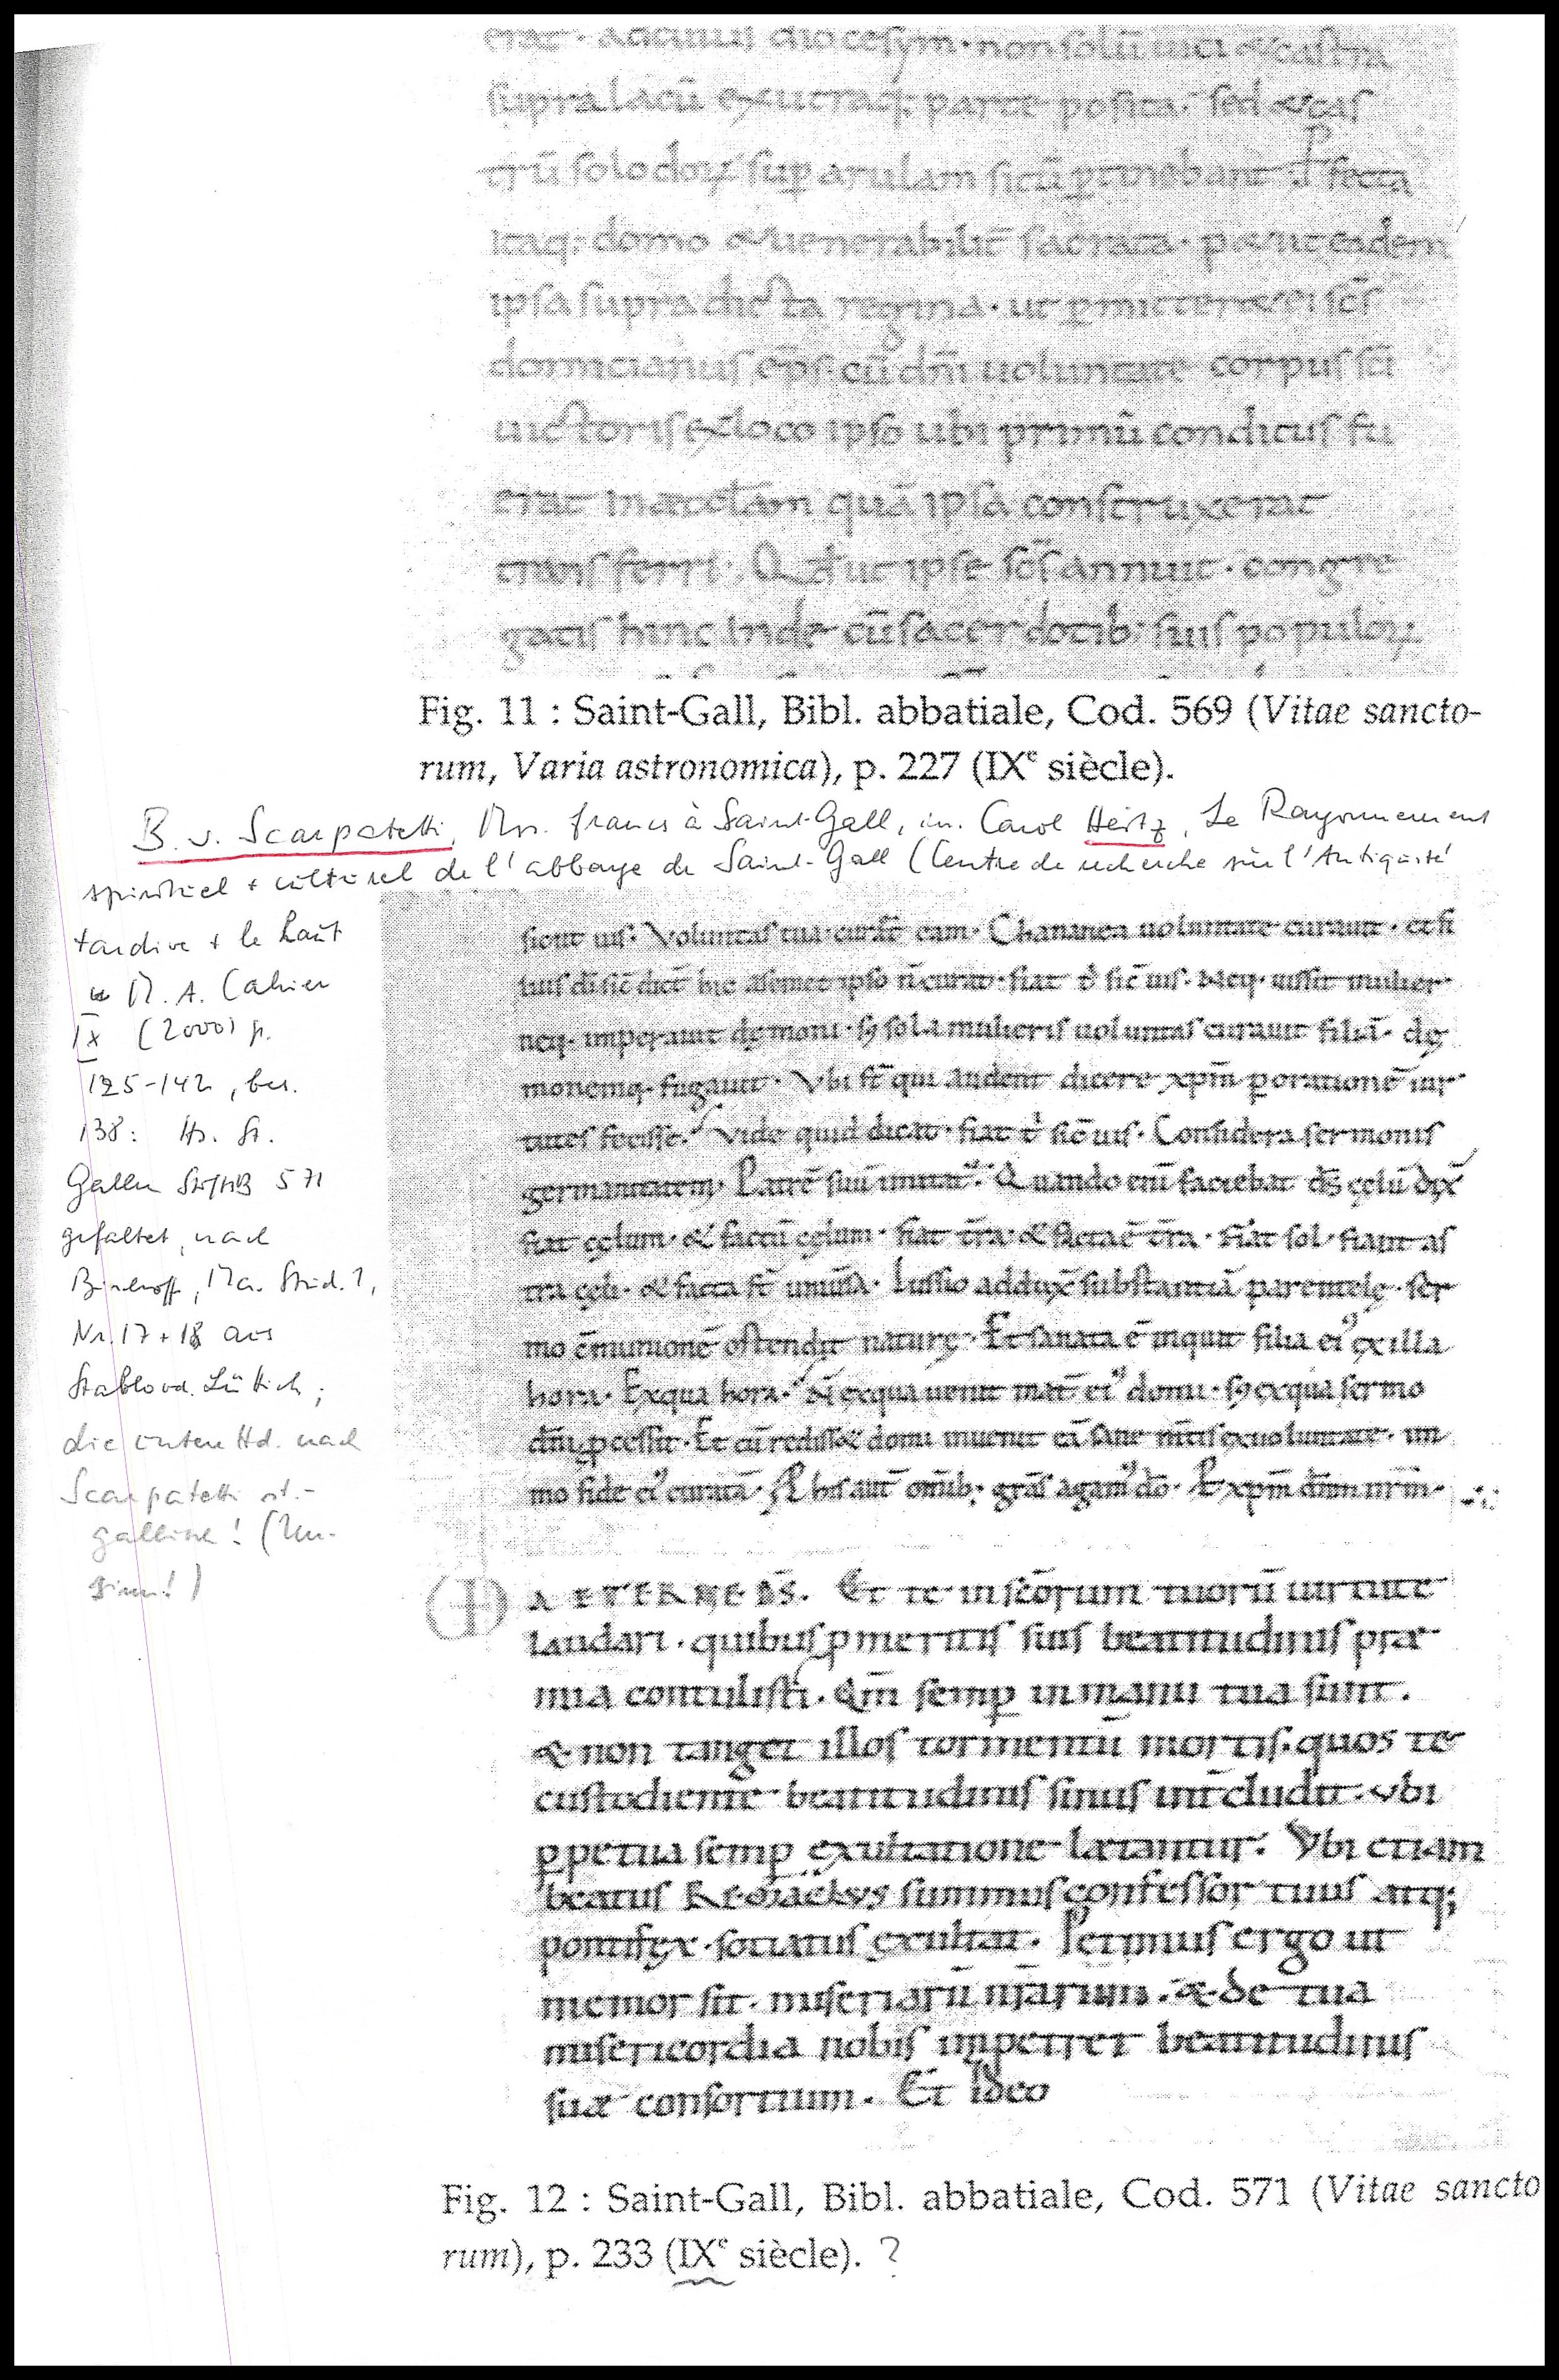 erat. adcuius diocesym. non solū uici & castra
supra lacū ex utraq; parte posita. sed & cas
trū solodoꝝ sup arulam sitū ꝑtinebant. Pfecta
itaq; domo & uenerabilit̄ sacrata. petiit eadem
ipsa supra dicta regina. ut ꝑmitteret ei sc̄s
domicianus ep̄s. cū dn̄i uoluntate corpus sc̄i
uictoris ex loco ipso ubi primū conditus fu
erat in aeccl̄am quā ipsa construxerat
transferri. Qđ ut ipse sc̄s annuit. congre
gatis hinc inde cū sacerdotib; suis populoꝝ
Fig. 11 : Saint-Gall, Bibl. abbatiale, Cod. 569 (Vitae sancto-
rum, Varia astronomica), p. 227 (IXe siècle).
B. v. Scarpatetti, Mss. francs à Saint-Gall, in. Carol Heitz, Le Rayonnement
spirituel + culturel de l'abbaye de Saint-Gall (Centre de recherche sur l'Antiquité
tardive + le haut
M. A. Cahier
IX (2000) p.
125-142, bes.
138: Hs. St.
Gallen StiftsB 571
gefaltet, nach
Bischoff, Ma. Stud. 1,
Nr. 17 + 18 aus
Stablo od. Lüttich;
die untere Hd. nach
Scarpatetti st.-
gallisch! (Un-
sinn!)
sicut uis. Voluntas tua curat eam. Chananea uoluntate curauit. et fi
lius di sic̄ dicit hic a semet ipso n̄ curat. fiat t' sic̄ uis. Neq. iussit mulier
neq. imperauit dęmoni. sꝫ sola mulieris uoluntas curauit filiā. dę
monemq. fugauit. Vbi st̄ qui audent dicere xp̄m ꝑ orationē uir
tutes fecisse. Vide quid dicat. fiat t' sic̄ uis. Considera sermonis
germanitatem. Patrē suū imitat'. Quando enī faciebat d̄s cęlū dix̄
fiat cęlum. & factū cęlum. fiat t̄ra. & facta ē t̄ra. fiat sol. fiant as
tra cęli. & facta st̄ uniuersa. Iussio adduxit substantiā parentelę. ser
mo cōmunionē ostendit naturę. Et sanata ē inquit filia ei' ex illa
hora. Ex qua hora. N̄ ex qua uenit mat̄ ei' domū. sꝫ ex qua sermo
dn̄i ꝓcessit. Et cū redisset domū inuenit eā sane mentis ex uoluntate. im
mo fide ei' curatā. P his aut̄ omib; gr̄as agam' dō. P xp̄m dn̄m nr̄m.
A ETERNE D̄S. Et te in sc̄orum tuorū uirtute
laudari. quibus ꝓ meritis suis beatitudinis præ
mia contulisti. Qm̄ semp in manu tua sunt.
& non tanget illos tormentū mortis. quos te
custodiente beatitudinis sinus int̄cludit. Vbi
ꝑpetua semp exultatione lætantur. Vbi etiam
beatus Remaclus summus confessor tuus atq;
pontifex. sociatus exultat. Petimus ergo ut
memor sit. miseriarū nr̄arum. & de tua
misericordia nobis impetret beatitudinis
suæ consortium. Et ideo
Fig. 12 : Saint-Gall, Bibl. abbatiale, Cod. 571 (Vitae sancto
rum), p. 233 (IXe siècle). ?